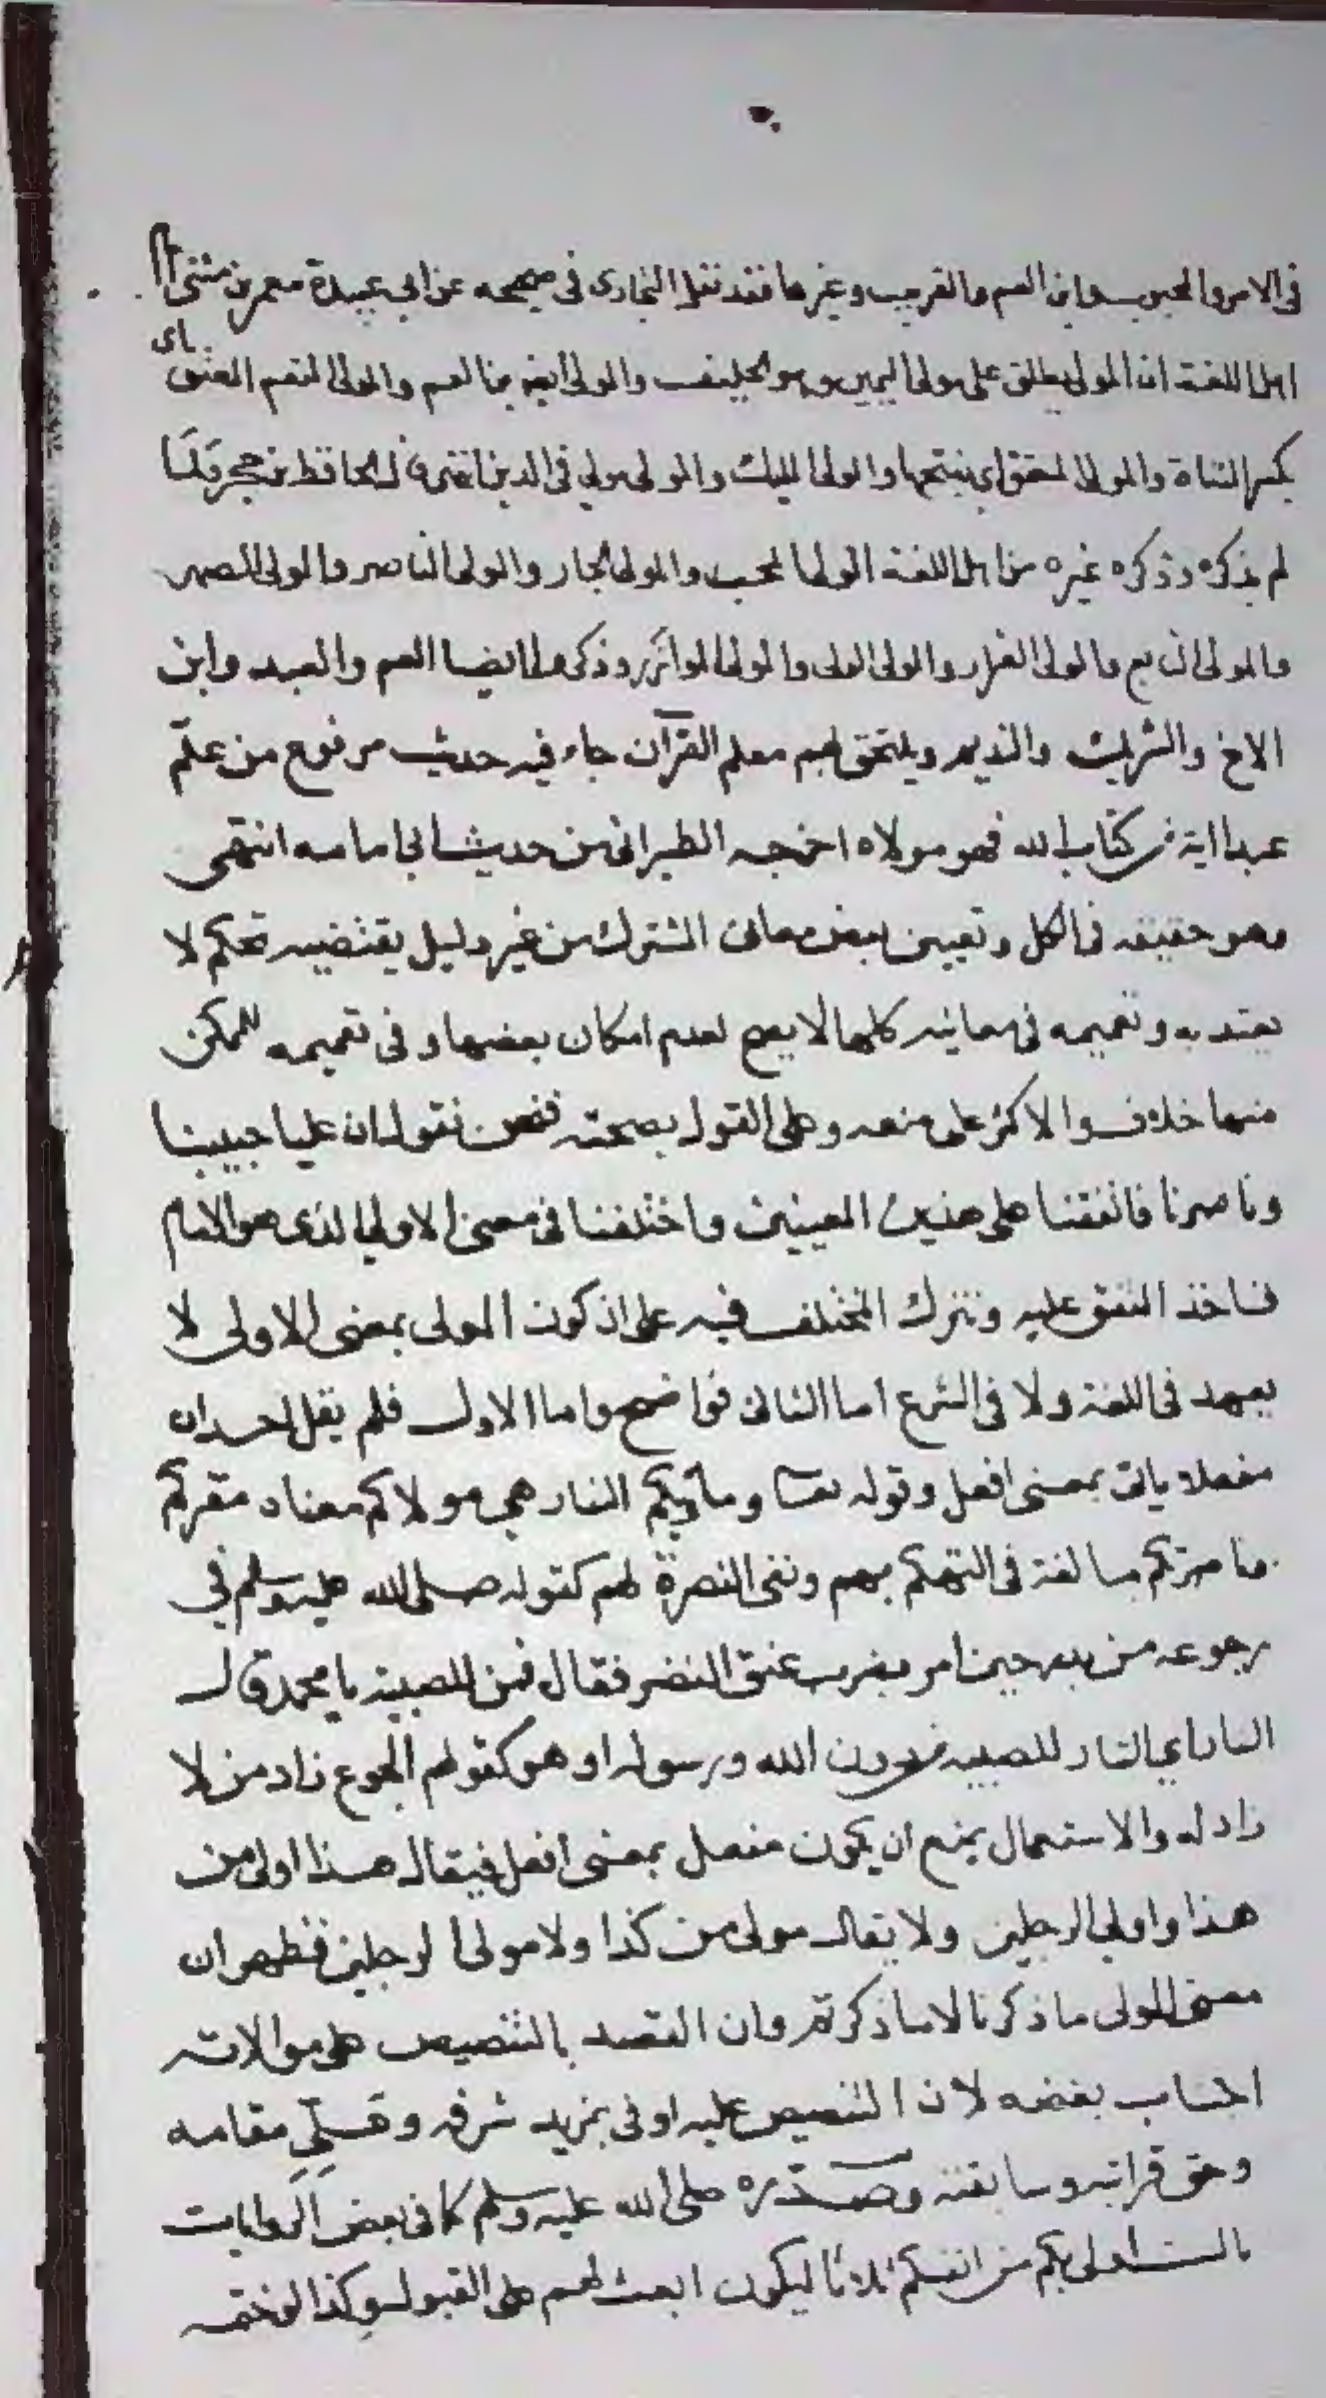 في الامر والمحبوب وابن العم والقريب وغيرها فقد نقل البخاري في صحيحه عن ابي عبيدة معمر بن مثنى
اهل اللغة ان المولى يطلق على مولى اليمين وهو الحليف والمولى ايضا ابن العم والمولى المنعم المعتق اي
بكسر المثناة والمولى المعتق اي بفتحها والمولى المليك والمولى مولي في الدين انتهى قال الحافظ بن حجر ومما
لم يذكره وذكره غيره من اهل اللغة المولى المحب والمولى الجار والمولى الناصر والمولى الصهر
والمولى التابع والمولى القرار والمولى الولى والمولى الموازر وذكروا ايضا العم والعبد وابن
الاخ والشريك والنديم ويلتحق بهم معلم القرآن جاء فيه حديث مرفوع من علّم
عبدا اية من كتاب الله فهو مولاه اخرجه الطبراني من حديث ابي امامه انتهى
وهو حقيقه في الكل وتعيين بعض معانى المشترك من غير دليل يقتضيه تحكم لا
يعتد به وتعميمه في معانيه كلها لا يصح لعدم امكان بعضها وفى تعميمه للممكن
منها خلاف والاكثر على منعه وعلى القول بصحته فنحن نقول ان عليا حبيبنا
وناصرنا فاتفقنا على هذين المعنيين واختلفنا في معنى الاولى الذى هو الامام
فناخذ المتفق عليه ونترك المختلف فيه على ان كون المولى بمعنى الاولى لا
يعهد في اللغة ولا في الشرع اما الثانى فواضح واما الاول فلم يقل احد ان
مفعلا ياتى بمعنى افعل وقوله تعا وماويكم النار هي مولاكم معناه مقركم
وناصرتكم مبالغة في التهكم بهم ونفى النصرة لهم كقوله صلى الله عليه وسلم في
رجوعه من بدر حين امر بضرب عنق النضر فقال فمن للصبية يا محمد قال
النار اي النار للصبيه من دون الله ورسوله او هو كقولهم الجوع زاد من لا
زاد له والاستعمال يمنع ان يكون مفعل بمعنى افعل فيقال هذا اولى من
هذا واولى الرجلين ولا يقال مولى من كذا ولا مولى الرجلين فظهر ان
معنى المولى ما ذكرنا لا ما ذكرتم وان القصد بالتنصيص على موالاته
اجتناب بغضه لان التنصيص عليه اوفى بمزيد شرفه وعليّ مقامه
وحق قرابته وسابقته وصدّره صلى الله عليه وسلم كما في بعض الروايات
بالست اولى بكم من انفسكم ثلاثا ليكون ابعث لهم على القبول وكذا لو ختمه